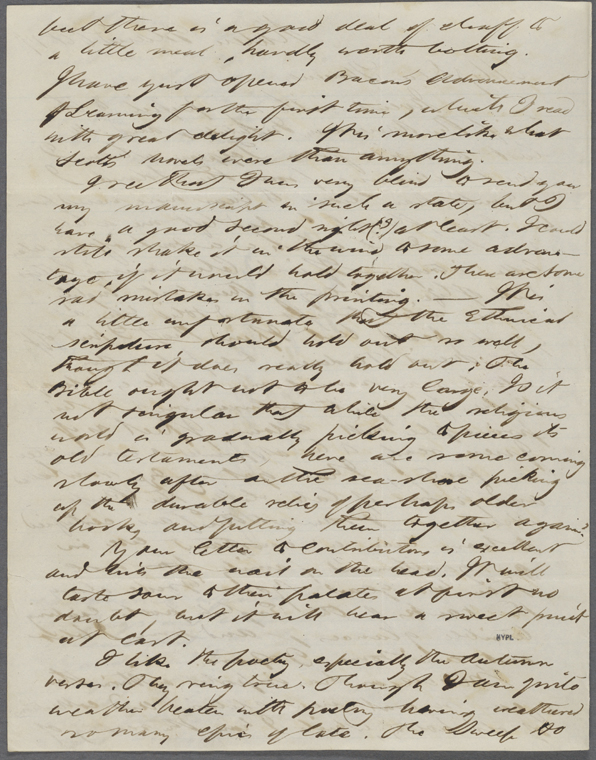 but there is a good deal of chaff to
a little meal, hardly worth bolting.
I have just opened Bacon's Advancement
of Learning for the first time, which I read
with great delight. It is more like what
Scott's novels were than anything.
I see that I was very blind to send you
my manuscript in such a state, but I
have a good second sight (?) at least. I could
still shake it in the wind to some advan-
tage, if it would hold together. There are some
sad mistakes in the printing. — It is
a little unfortunate that the Ethnical
scriptures should hold out so well,
though it does really hold out; The
Bible ought not to be very large. Is it
not singular that while the religious
world is gradually picking to pieces its
old testaments, here are some coming
slowly after on the sea-shore picking
up the durable relics of perhaps older
books, and putting them together again?
Your Letter to Contributors is excellent
and hits the nail on the head. It will
taste sour to their palates at first no
doubt, but it will bear a sweet fruit
at last.
I like the poetry, especially the Autumn
verses. They ring true. Though I am quite
weather beaten with poetry having weathered
so many epics of late. The Sweep Ho
NYPL